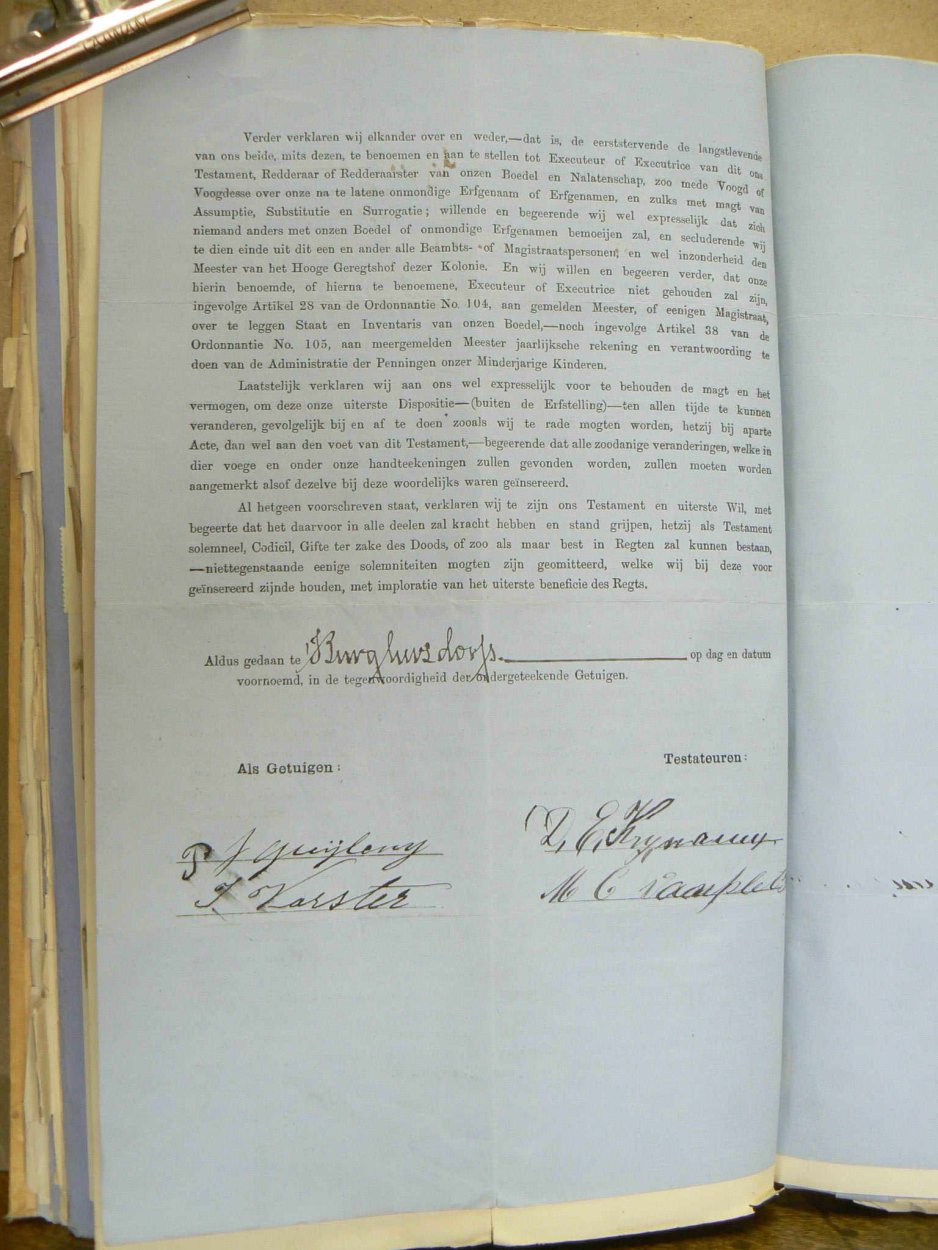 TAIWAN
Verder verklaren wij elkander over en weder,—dat is, de eerststervende de langstlevende
van ons beide, mits dezen, te benoemen en aan te stellen tot Executeur of Executrice van dit ons
Testament, Redderaar of Redderaarster van onzen Boedel en Nalatenschap, zoo mede Voogd of
Voogdesse over onze na te latene onmondige Erfgenaam of Erfgenamen, en zulks met magt van
Assumptie, Substitutie en Surrogatie; willende en begeerende wij wel expresselijk dat zich
niemand anders met onzen Boedel of onmondige Erfgenamen bemoeijen zal, en secluderende wij
te dien einde uit dit een en ander alle Beambts- of Magistraatspersonen, en wel inzonderheid den
Meester van het Hooge Geregtshof dezer Kolonie. En wij willen en begeeren verder, dat onze
hierin benoemde, of hierna te benoemene, Executeur of Executrice niet gehouden zal zijn,
ingevolge Artikel 28 van de Ordonnantie No. 104, aan gemelden Meester, of eenigen Magistraat,
over te leggen Staat en Inventaris van onzen Boedel,—noch ingevolge Artikel 38 van de
Ordonnantie No. 105, aan meergemelden Meester jaarlijksche rekening en verantwoording te
doen van de Administratie der Penningen onzer Minderjarige Kinderen.
Laatstelijk verklaren wij aan ons wel expresselijk voor te behouden de magt en het
vermogen, om deze onze uiterste Dispositie—(buiten de Erfstelling)—ten allen tijde te kunnen
veranderen, gevolgelijk bij en af te doen zooals wij te rade mogten worden, hetzij bij aparte
Acte, dan wel aan den voet van dit Testament,—begeerende dat alle zoodanige veranderingen, welke in
dier voege en onder onze handteekeningen zullen gevonden worden, zullen moeten worden
aangemerkt alsof dezelve bij deze woordelijks waren geïnsereerd.
Al hetgeen voorschreven staat, verklaren wij te zijn ons Testament en uiterste Wil, met
begeerte dat het daarvoor in alle deelen zal kracht hebben en stand grijpen, hetzij als Testament
solemneel, Codicil, Gifte ter zake des Doods, of zoo als maar best in Regten zal kunnen bestaan,
—niettegenstaande eenige solemniteiten mogten zijn geomitteerd, welke wij bij deze voor
geïnsereerd zijnde houden, met imploratie van het uiterste beneficie des Regts.
Aldus gedaan te Burghersdorp. op dag en datum
voornoemd, in de tegenwoordigheid der ondergeteekende Getuigen.
Als Getuigen: Testateuren:
P J D. E.
J Vorster M C